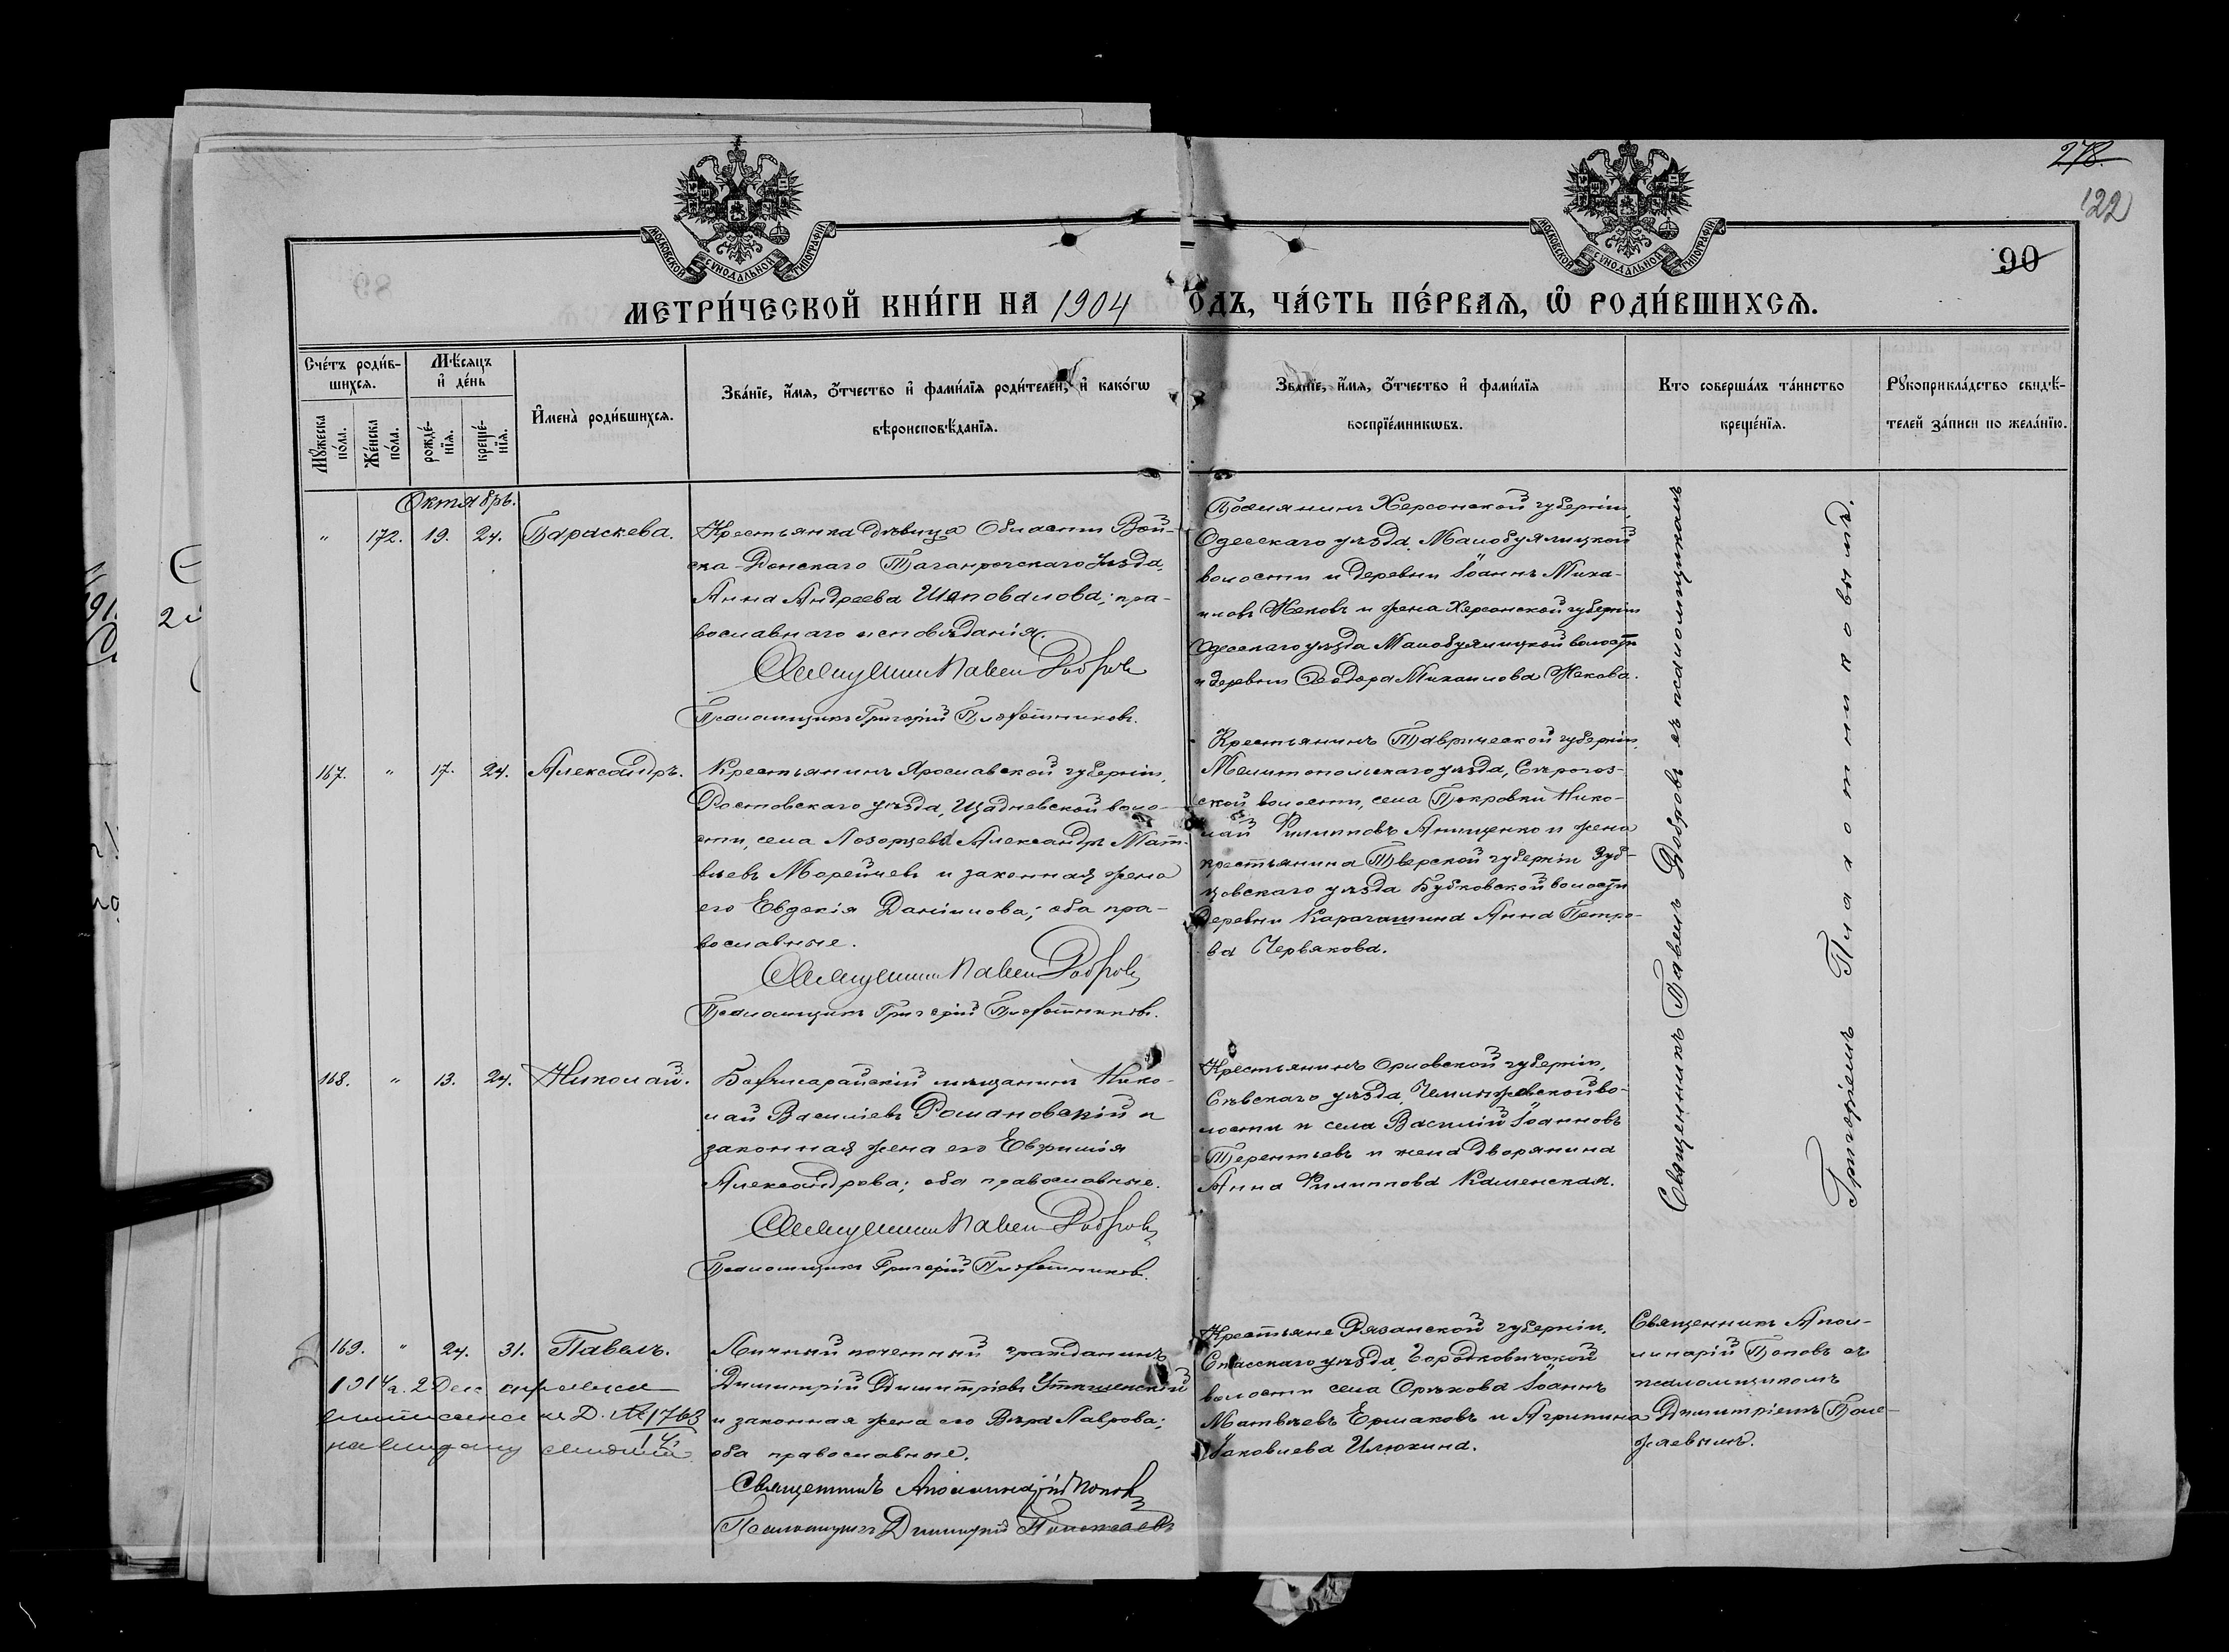 278.
122
90
МОСКОВСКОЙ СѴНОДАЛЬНОЙ ТИПОГРАФІИ
МОСКОВСКОЙ СѴНОДАЛЬНОЙ ТИПОГРАФІИ
МЕТРИ́ЧЕСКОЙ КНИ́ГИ НА 1904 ОДЪ, ЧА́СТЬ ПЕ́РВАЯ, Ѡ҆ РОДИ́ВШИХСЯ.
Сче́тъ роди́в-
шихся.
Мѣ́сяцъ
и҆ де́нь
Мꙋ́жеска по́ла.
Же́нска по́ла.
рожде́-
нїя.
креще́-
нїя.
И҆мена̀ роди́вшихся.
Зва́нїе, и҆́мя, ѻ҆́тчество и҆ фами́лїя роди́телей, и҆ како́гѡ
вѣроисповѣ́данїя.
Зва́нїе, и҆́мя, ѻ҆́тчество и҆ фами́лїя
воспрїе́мникѡвъ.
Кто соверша́лъ та́инство
креще́нїя.
Рꙋкоприкла́дство свидѣ́-
телей за́писи по жела́нїю.
Октябрь.
" 172. 19. 24. Параскева.
Крестьянка дѣвица Области Вой-
ска Донскаго Таганрогскаго уѣзда,
Анна Андреева Шаповалова; пра-
вославнаго исповѣданія.
Священникъ Павелъ Добровъ
Псаломщикъ Григорій Плотниковъ.
Поселянинъ Херсонской губерніи,
Одесскаго уѣзда, Малобуялицкой
волости и деревни Іоаннъ Миха-
иловъ Жековъ и жена Херсонской губерніи
Одесскаго уѣзда Малобуялицкой волости
и деревни Ѳеодора Михаилова Жекова.
167. " 17. 24. Александръ.
Крестьянинъ Ярославской губерніи,
Ростовскаго уѣзда, Щадневской воло-
сти, села Лазорцева Александръ Мат-
вѣевъ Морейчевъ и законная жена
его Евдокія Даніилова; оба пра-
вославные.
Священникъ Павелъ Добровъ
Псаломщикъ Григорій Плотниковъ.
Крестьянинъ Таврической губерніи,
Мелитопольскаго уѣзда, Сѣрогоз-
ской волости, села Покровки Нико-
лай Филипповъ Анищенко и жена
крестьянина Тверской губерніи Зуб-
цовскаго уѣзда Бубковской волости
деревни Карагашина Анна Петро-
ва Червякова.
168. " 13. 24. Николай.
Бахчисарайскій мѣщанинъ Нико-
лай Василіевъ Романовскій и
законная жена его
Александрова; оба православные.
Священникъ Павелъ Добровъ
Псаломщикъ Григорій Плотниковъ.
Крестьянинъ Орловской губерніи,
Сѣвскаго уѣзда, во-
лости и села Василій Іоанновъ
Терентьевъ и жена дворянина
Анна Филиппова Каменская.
Священникъ Павелъ Добровъ съ псаломщикомъ
Григоріемъ Плотниковымъ.
169. " 24. 31. Павелъ.
Личный почетный гражданинъ
Димитрій Димитріевъ
и законная жена его Вѣра Лаврова;
оба православные.
Священникъ Аполлинарій Поповъ
Псаломщикъ Димитрій Полежаевъ
Крестьяне Рязанской губерніи,
Спасскаго уѣзда, Городковичской
волости села Орѣхова Іоаннъ
Матвѣевъ Ермаковъ и Агрипина
Іаковлева Илюхина.
Священникъ Апол-
линарій Поповъ съ
псаломщикомъ
Димитріемъ Поле-
жаевымъ.